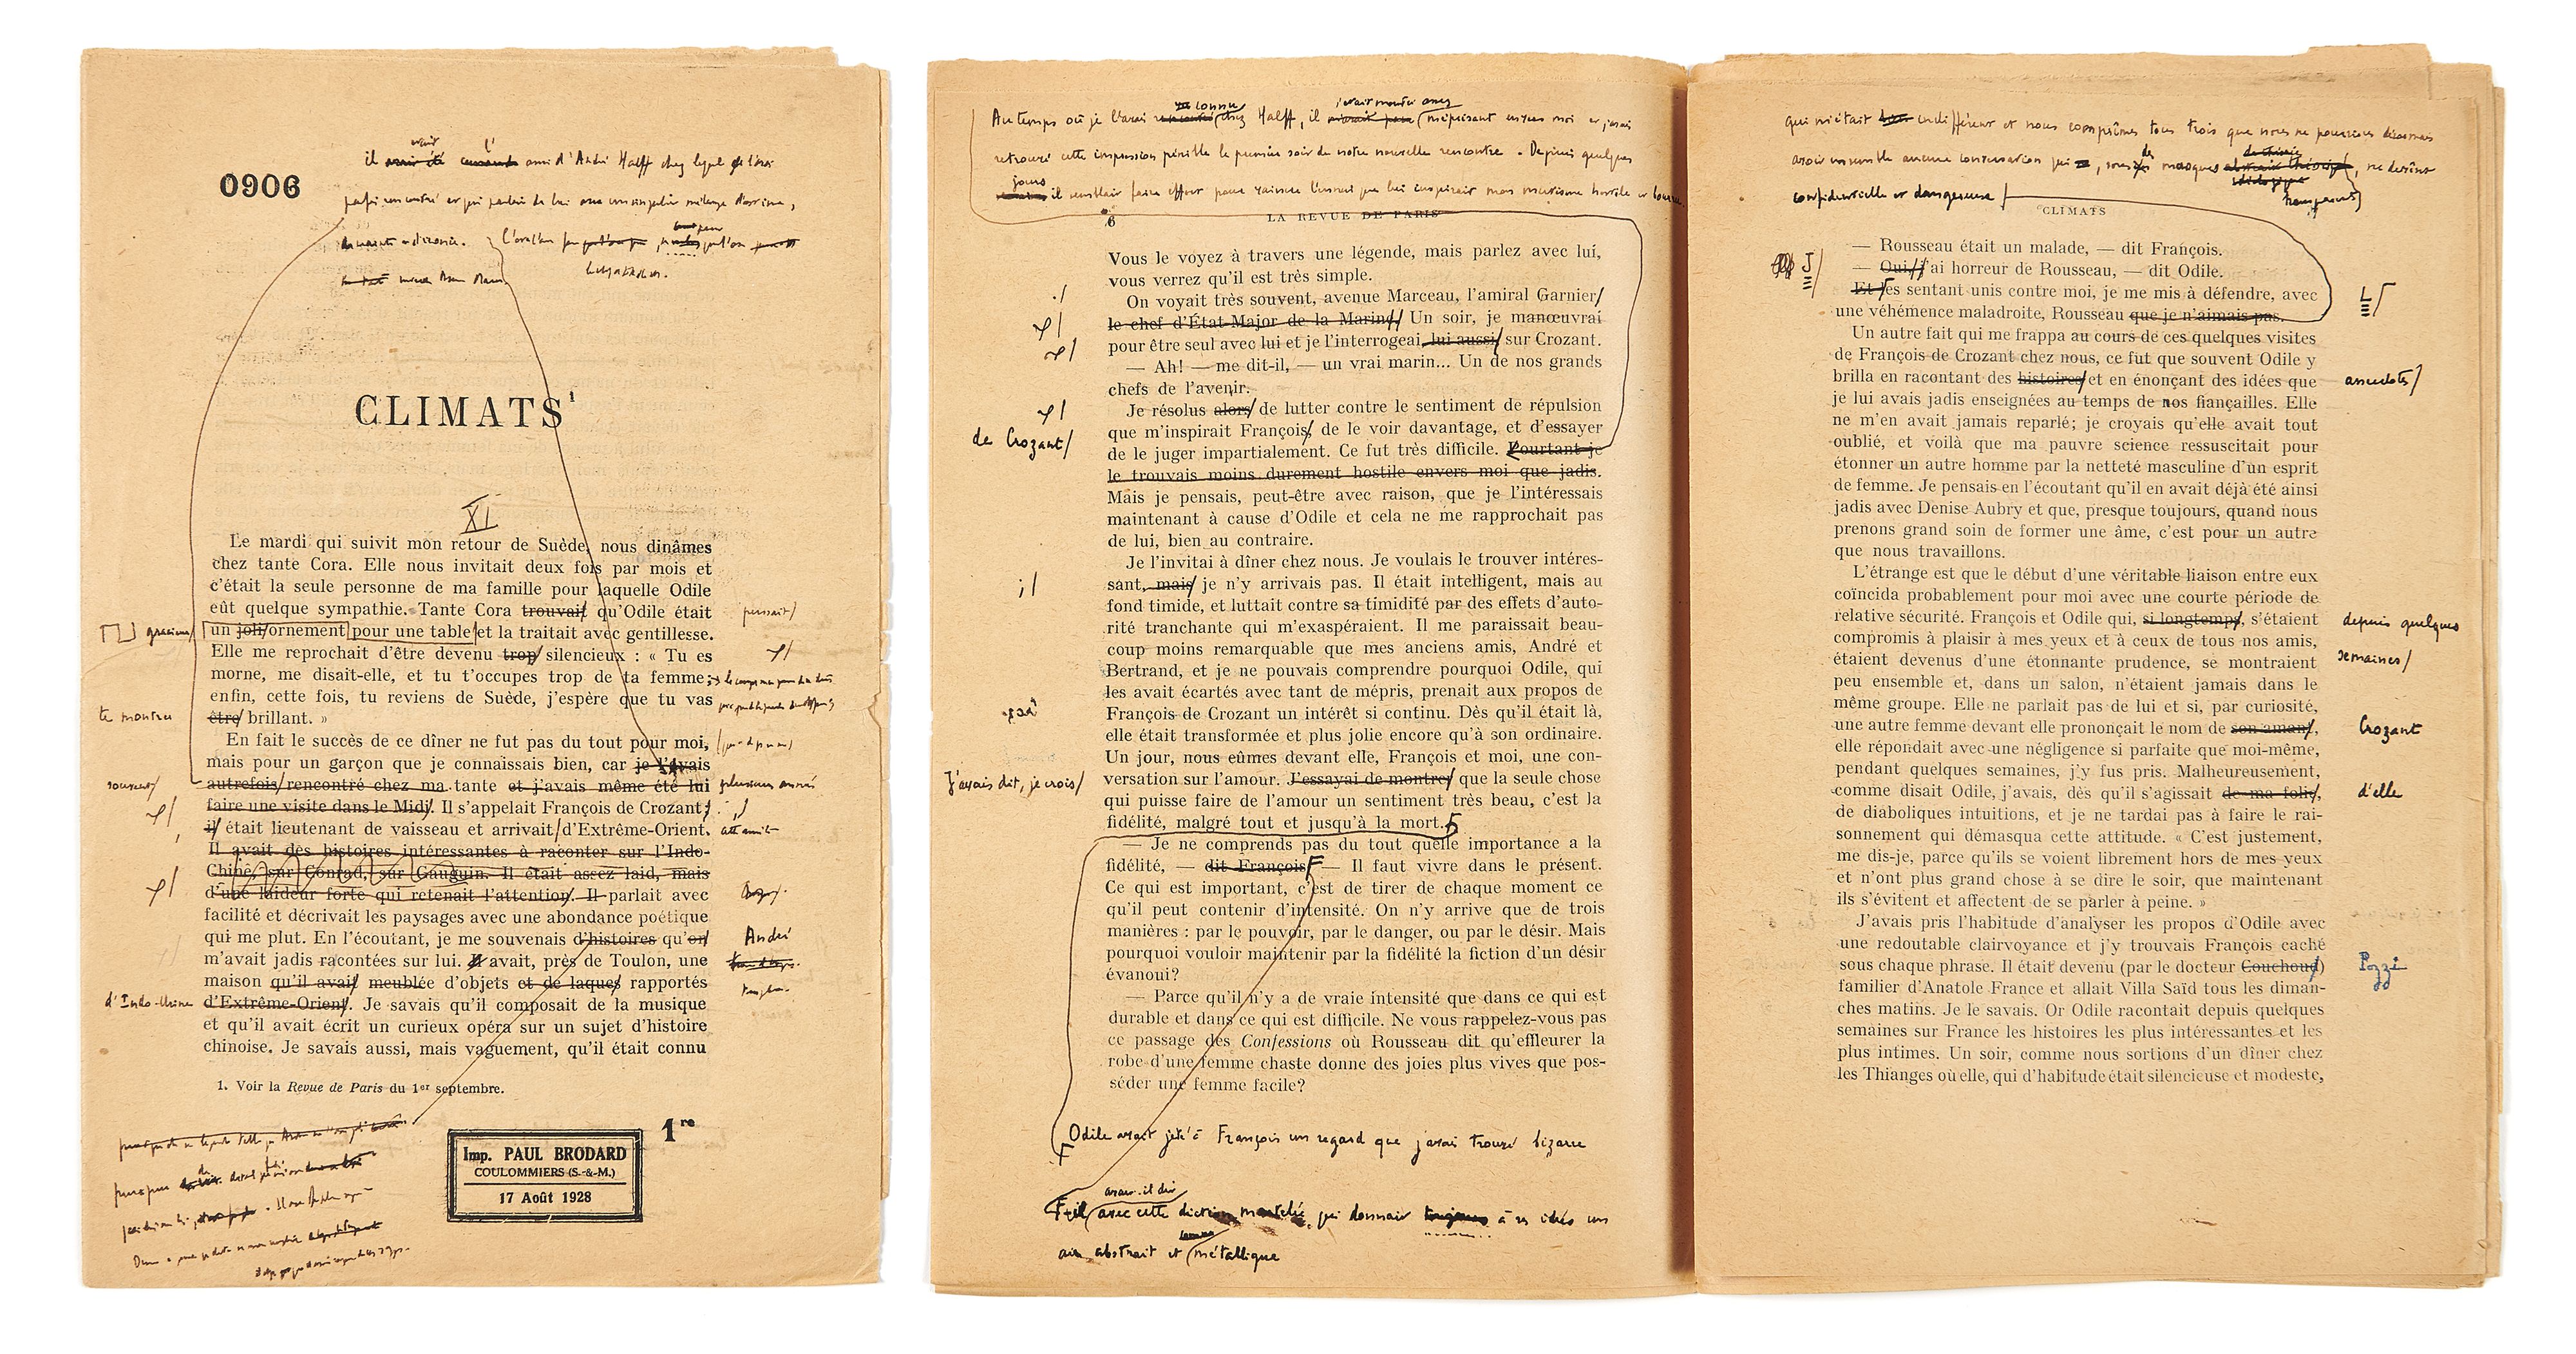 0906
il ami d'André Halff chez lequel je l'avais
CLIMATS¹
XI
Le mardi qui suivit mon retour de Suède, nous dinâmes
chez tante Cora. Elle nous invitait deux fois par mois et
c'était la seule personne de ma famille pour laquelle Odile
eût quelque sympathie. Tante Cora trouvait qu'Odile était
pensait/
gracieux/
un joli/ornement pour une table et la traitait avec gentillesse.
Elle me reprochait d'être devenu trop silencieux : « Tu es
morne, me disait-elle, et tu t'occupes trop de ta femme;
enfin, cette fois, tu reviens de Suède, j'espère que tu vas
te montrer
être brillant. »
En fait le succès de ce dîner ne fut pas du tout pour moi,
mais pour un garçon que je connaissais bien, car je l'avais
souvent/
autrefois/rencontré chez ma tante et j'avais même été lui
plusieurs années
faire une visite dans le Midi. Il s'appelait François de Crozant;
il était lieutenant de vaisseau et arrivait/d'Extrême-Orient.
Il avait des histoires intéressantes à raconter sur l'Indo-
Chine, sur Conrad, sur Gauguin. Il était assez laid, mais
d'une laideur forte qui retenait l'attention. Il parlait avec
facilité et décrivait les paysages avec une abondance poétique
qui me plut. En l'écoutant, je me souvenais d'histoires qu'on
André
m'avait jadis racontées sur lui. Il avait, près de Toulon, une
maison qu'il avait meublée d'objets et de laques rapportés
d'Indo-Chine
d'Extrême-Orient. Je savais qu'il composait de la musique
et qu'il avait écrit un curieux opéra sur un sujet d'histoire
chinoise. Je savais aussi, mais vaguement, qu'il était connu
1. Voir la Revue de Paris du 1er septembre.
1re
Imp. PAUL BRODARD
COULOMMIERS (S.-&-M.)
17 Août 1928
Au temps où je l'avais connu chez Halff, il s'était montré assez méprisant envers moi et j'avais
retrouvé cette impression pénible le premier soir de notre nouvelle rencontre. Depuis quelques
jours il semblait faire effort pour vaincre l'ennui que lui inspirait mon mutisme hostile et
6
LA REVUE DE PARIS
Vous le voyez à travers une légende, mais parlez avec lui,
vous verrez qu'il est très simple.
On voyait très souvent, avenue Marceau, l'amiral Garnier/
le chef d'État-Major de la Marine. Un soir, je manœuvrai
pour être seul avec lui et je l'interrogeai, lui aussi, sur Crozant.
— Ah! — me dit-il, — un vrai marin... Un de nos grands
chefs de l'avenir.
Je résolus alors de lutter contre le sentiment de répulsion
de Crozant/
que m'inspirait François, de le voir davantage, et d'essayer
de le juger impartialement. Ce fut très difficile. Pourtant je
le trouvais moins durement hostile envers moi que jadis.
Mais je pensais, peut-être avec raison, que je l'intéressais
maintenant à cause d'Odile et cela ne me rapprochait pas
de lui, bien au contraire.
Je l'invitai à dîner chez nous. Je voulais le trouver intéres-
;/
sant, mais je n'y arrivais pas. Il était intelligent, mais au
fond timide, et luttait contre sa timidité par des effets d'auto-
rité tranchante qui m'exaspéraient. Il me paraissait beau-
coup moins remarquable que mes anciens amis, André et
Bertrand, et je ne pouvais comprendre pourquoi Odile, qui
les avait écartés avec tant de mépris, prenait aux propos de
François de Crozant un intérêt si continu. Dès qu'il était là,
elle était transformée et plus jolie encore qu'à son ordinaire.
Un jour, nous eûmes devant elle, François et moi, une con-
J'avais dit, je crois/
versation sur l'amour. J'essayai de montrer que la seule chose
qui puisse faire de l'amour un sentiment très beau, c'est la
fidélité, malgré tout et jusqu'à la mort.
— Je ne comprends pas du tout quelle importance a la
fidélité, — dit François — Il faut vivre dans le présent.
Ce qui est important, c'est de tirer de chaque moment ce
qu'il peut contenir d'intensité. On n'y arrive que de trois
manières : par le pouvoir, par le danger, ou par le désir. Mais
pourquoi vouloir maintenir par la fidélité la fiction d'un désir
évanoui?
— Parce qu'il n'y a de vraie intensité que dans ce qui est
durable et dans ce qui est difficile. Ne vous rappelez-vous pas
ce passage des Confessions où Rousseau dit qu'effleurer la
robe d'une femme chaste donne des joies plus vives que pos-
séder une femme facile?
Odile avait jeté à François un regard que j'avais trouvé bizarre
avait-il dit
avec cette diction martelée, qui donnait toujours à ses idées un
air abstrait et comme métallique
qui m'était indifférent et nous comprîmes tous trois que nous ne pourrions désormais
avoir ensemble aucune conversation qui, sous des masques transparents, ne devînt
confidentielle et dangereuse
CLIMATS
— Rousseau était un malade, — dit François.
J/
— Oui, j'ai horreur de Rousseau, — dit Odile.
L
Et les sentant unis contre moi, je me mis à défendre, avec
une véhémence maladroite, Rousseau que je n'aimais pas.
Un autre fait qui me frappa au cours de ces quelques visites
de François de Crozant chez nous, ce fut que souvent Odile y
brilla en racontant des histoires et en énonçant des idées que
anecdotes/
je lui avais jadis enseignées au temps de nos fiançailles. Elle
ne m'en avait jamais reparlé; je croyais qu'elle avait tout
oublié, et voilà que ma pauvre science ressuscitait pour
étonner un autre homme par la netteté masculine d'un esprit
de femme. Je pensais en l'écoutant qu'il en avait déjà été ainsi
jadis avec Denise Aubry et que, presque toujours, quand nous
prenons grand soin de former une âme, c'est pour un autre
que nous travaillons.
L'étrange est que le début d'une véritable liaison entre eux
coïncida probablement pour moi avec une courte période de
relative sécurité. François et Odile qui, si longtemps, s'étaient
depuis quelques
compromis à plaisir à mes yeux et à ceux de tous nos amis,
semaines/
étaient devenus d'une étonnante prudence, se montraient
peu ensemble et, dans un salon, n'étaient jamais dans le
même groupe. Elle ne parlait pas de lui et si, par curiosité,
une autre femme devant elle prononçait le nom de son amant,
Crozant
elle répondait avec une négligence si parfaite que moi-même,
pendant quelques semaines, j'y fus pris. Malheureusement,
comme disait Odile, j'avais, dès qu'il s'agissait de ma folie,
d'elle
de diaboliques intuitions, et je ne tardai pas à faire le rai-
sonnement qui démasqua cette attitude. « C'est justement,
me dis-je, parce qu'ils se voient librement hors de mes yeux
et n'ont plus grand chose à se dire le soir, que maintenant
ils s'évitent et affectent de se parler à peine. »
J'avais pris l'habitude d'analyser les propos d'Odile avec
une redoutable clairvoyance et j'y trouvais François caché
sous chaque phrase. Il était devenu (par le docteur Couchoud)
Pozzi
familier d'Anatole France et allait Villa Saïd tous les diman-
ches matins. Je le savais. Or Odile racontait depuis quelques
semaines sur France les histoires les plus intéressantes et les
plus intimes. Un soir, comme nous sortions d'un dîner chez
les Thianges où elle, qui d'habitude était silencieuse et modeste,